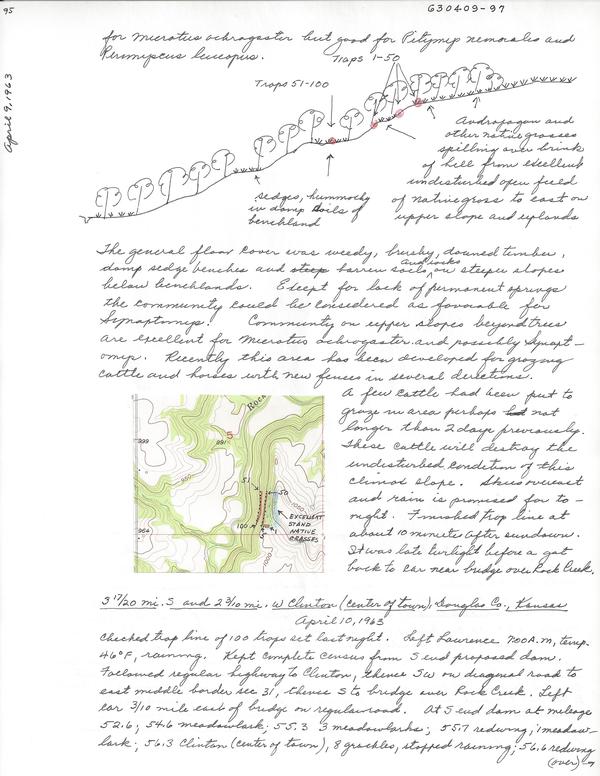 95
G30409-97
April 9, 1963
for Microtus ochrogaster but good for Pitymys nemoralis and
Permiscus leucopus.
Traps 1-50
Traps 51-100
Andropogon and
other native grasses
spilling over brink
of hill from excellent
undisturbed open field
of native grass to east on
upper slope and uplands
sedges, hummocky
in damp soils of
benchland
The general floor cover was weedy, brushy, downed timber,
damp sedge benches and steep barren soils and rocks on steeper slopes
below benchlands. Except for lack of permanent springs
the community could be considered as favorable for
Synaptomys. Community on upper slopes beyond trees
are excellent for Microtus ochrogaster and possibly Synapt-
omys. Recently this area has been developed for grazing
cattle and horses with new fences in several directions.
A few cattle had been put to
graze in area perhaps but not
longer than 2 days previously.
These cattle will destroy the
undisturbed condition of this
climax slope. Skies overcast
and rain is promised for to-
night. Finished trap line at
about 10 minutes after sundown.
It was late twilight before a got
back to car near bridge over Rock Creek.
Rock
5
999
991
950
51
50
100
1
964
1000
EXCELLENT
STAND
NATIVE
GRASSES
3 17/20 mi. S and 2 3/10 mi. W Clinton (center of town), Douglas Co., Kansas
April 10, 1963
Checked trap line of 100 traps set last night. Left Lawrence 7:00 A.M, temp.
46°F, raining. Kept complete census from S end proposed dam.
Followed regular highway to Clinton, thence SW on diagonal road to
east middle border sec 31, thence S to bridge over Rock Creek. Left
car 3/10 mile east of bridge on regular road. At S end dam at mileage
52.6; 54.6 meadowlark; 55.3 3 meadowlarks; 55.7 redwing, 1 meadow-
lark; 56.3 Clinton (center of town), 8 grackles, stopped raining; 56.6 redwing
(over)